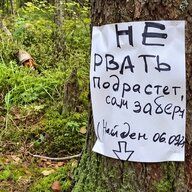 НЕ
РВАТЬ
Подрастет,
сам заберу
(Найден 06.09.2